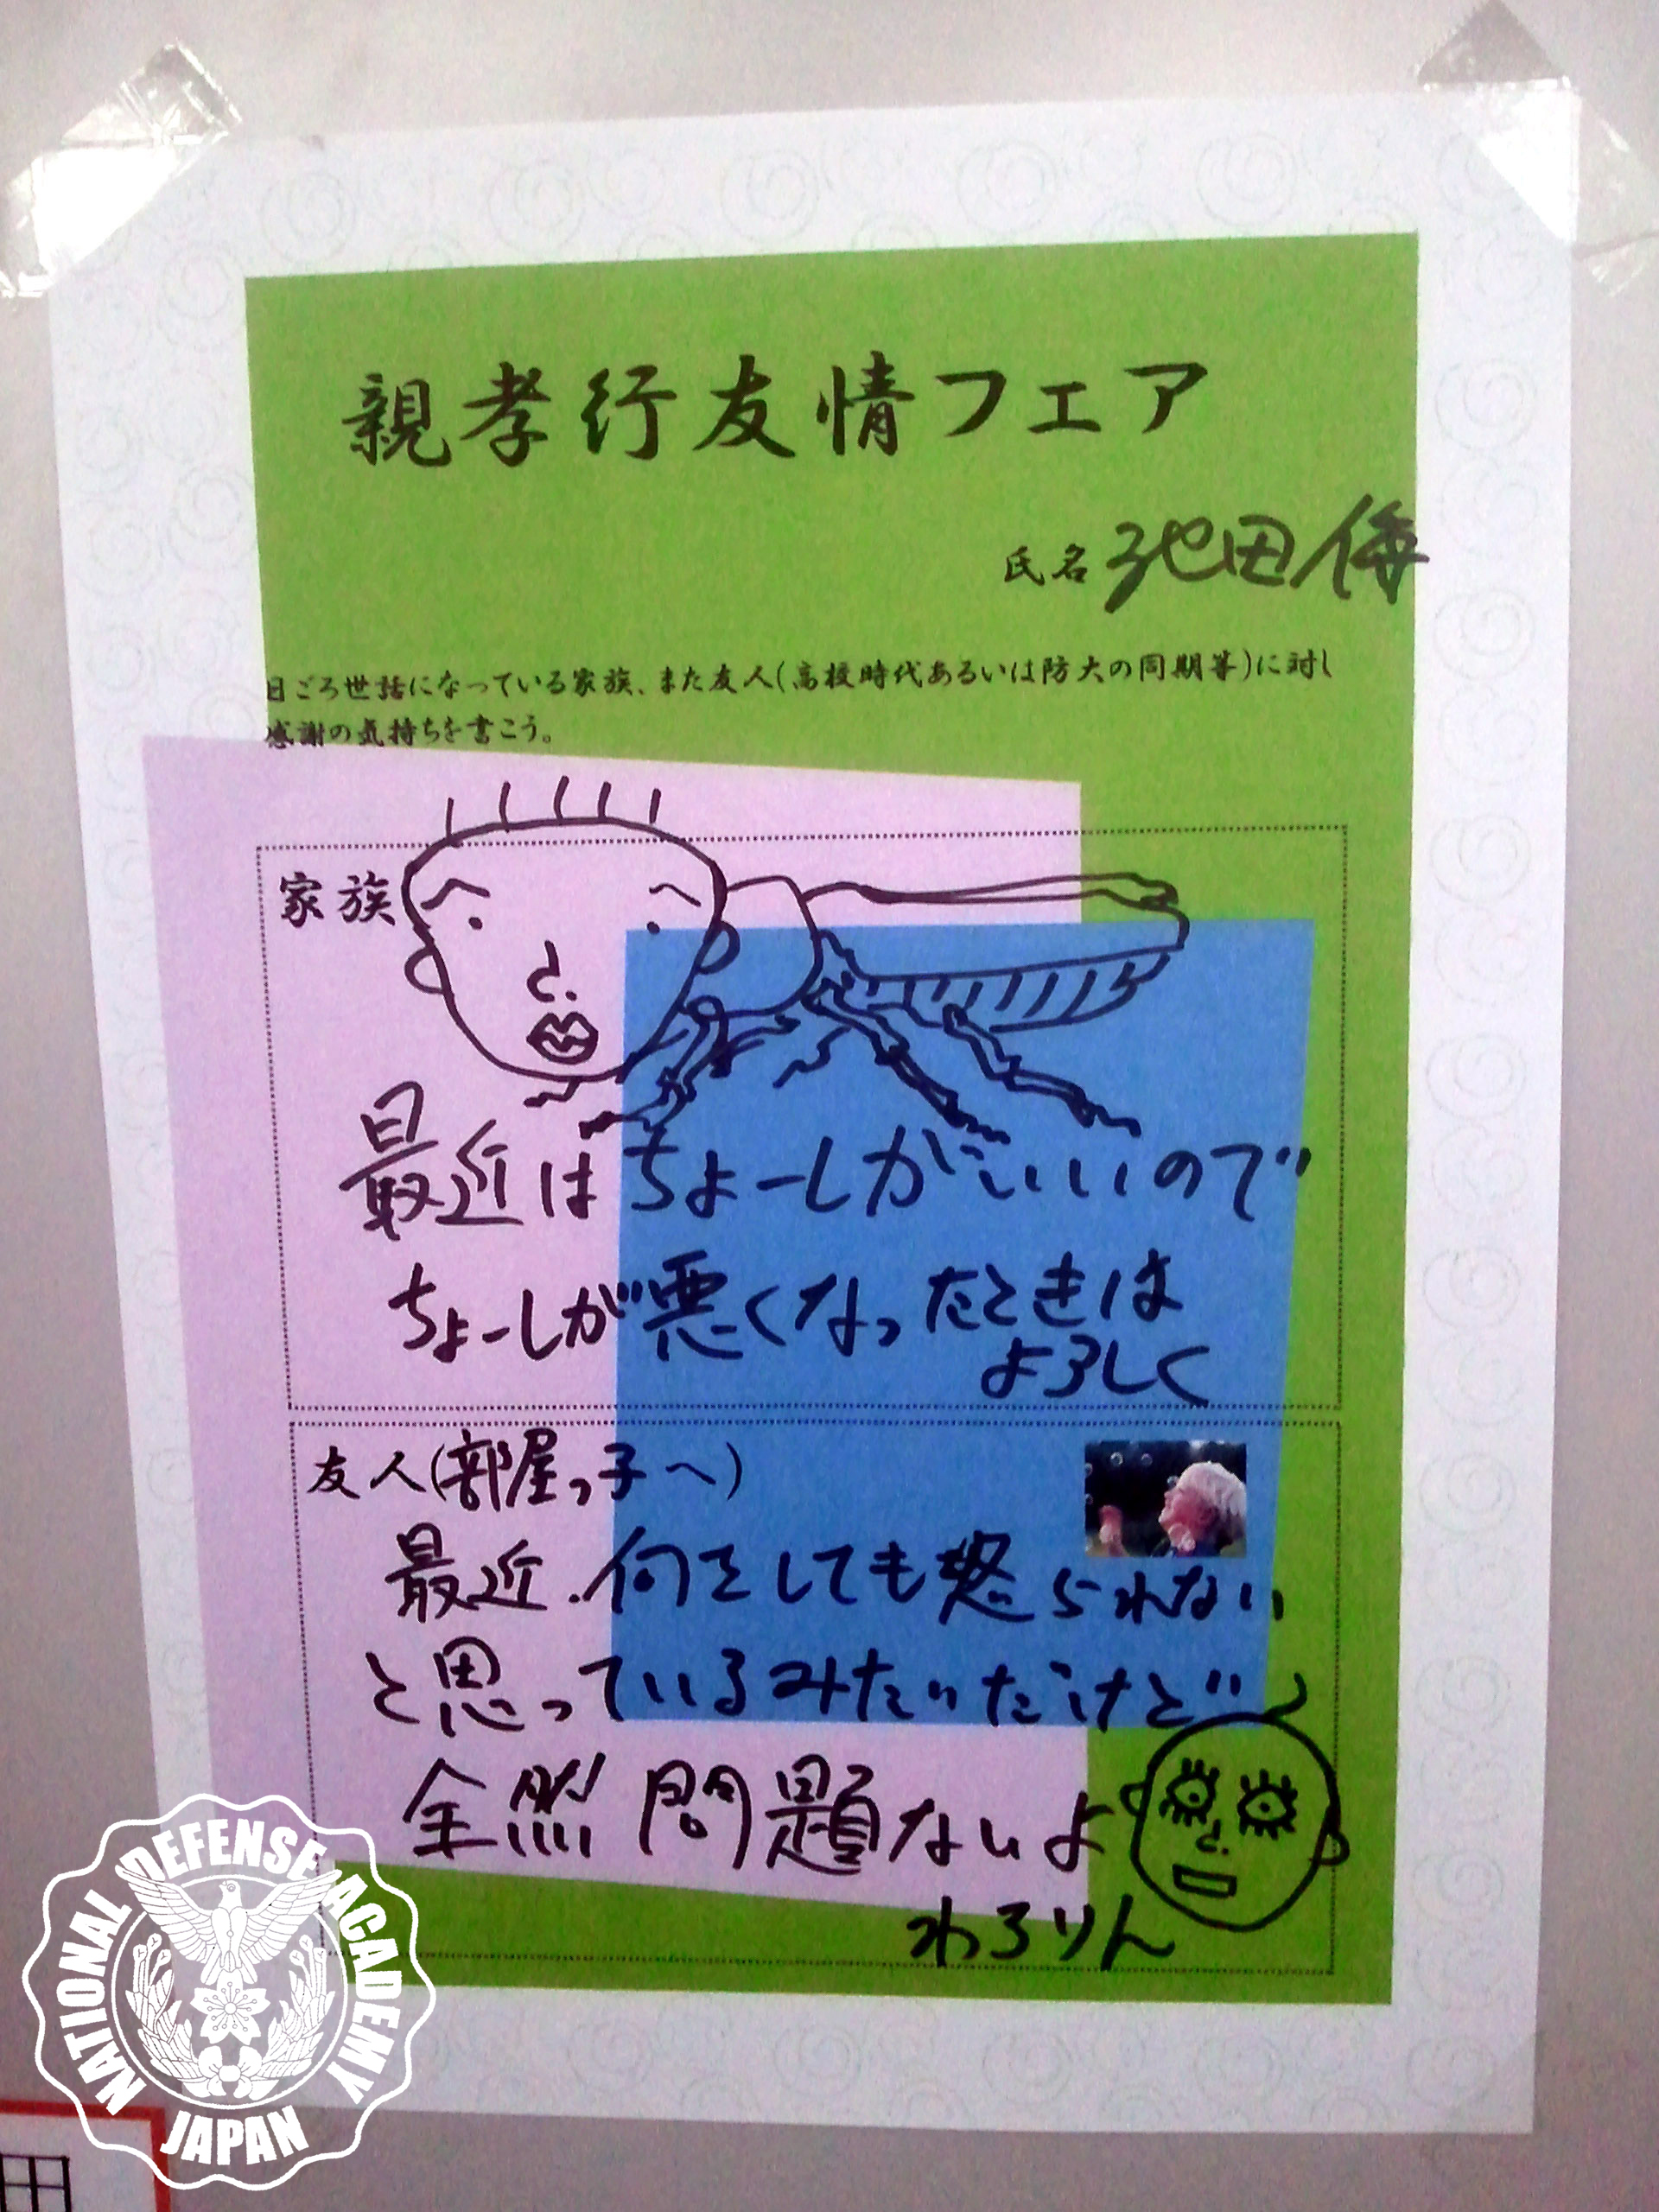 親孝行友情フェア
氏名 池田侑
日ごろ世話になっている家族、また友人(高校時代あるいは防大の同期等)に対し
感謝の気持ちを書こう。
家族
最近はちょーしがいいので
ちょーしが悪くなったときは
よろしく
友人(部屋っ子へ)
最近.何をしても怒られない
と思っているみたいだけど
全然問題ないよ
わろりん
NATIONAL DEFENSE ACADEMY
JAPAN